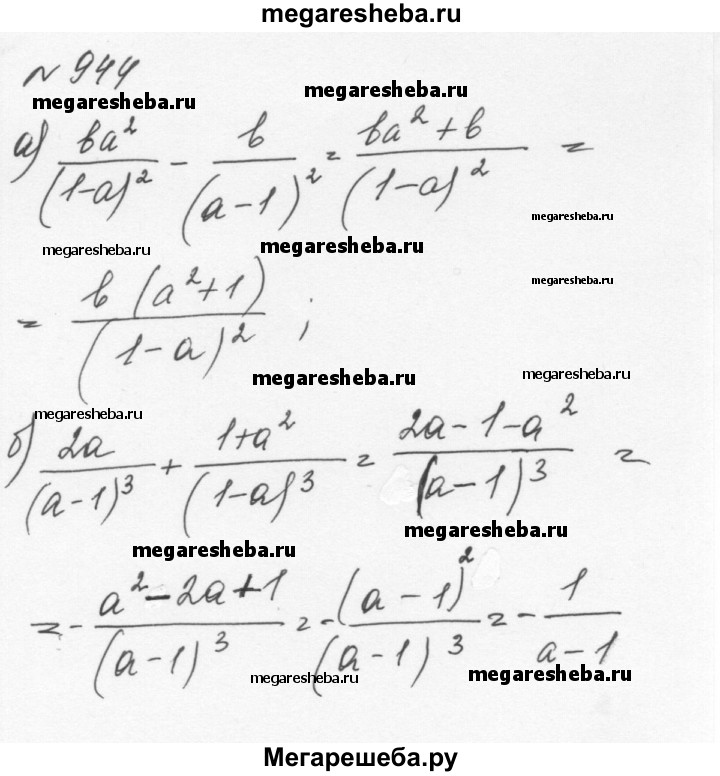 megaresheba.ru
№ 944
megaresheba.ru
megaresheba.ru
а) ba²/(1-a)² - b/(a-1)² = ba²+b/(1-a)² =
megaresheba.ru
megaresheba.ru
megaresheba.ru
megaresheba.ru
= b(a²+1)/(1-a)² ;
megaresheba.ru
megaresheba.ru
megaresheba.ru
б) 2a/(a-1)³ + 1+a²/(1-a)³ = 2a-1-a²/(a-1)³ =
megaresheba.ru
megaresheba.ru
= - a²-2a+1/(a-1)³ = -(a-1)²/(a-1)³ = - 1/a-1
megaresheba.ru
megaresheba.ru
Мегарешеба.ру